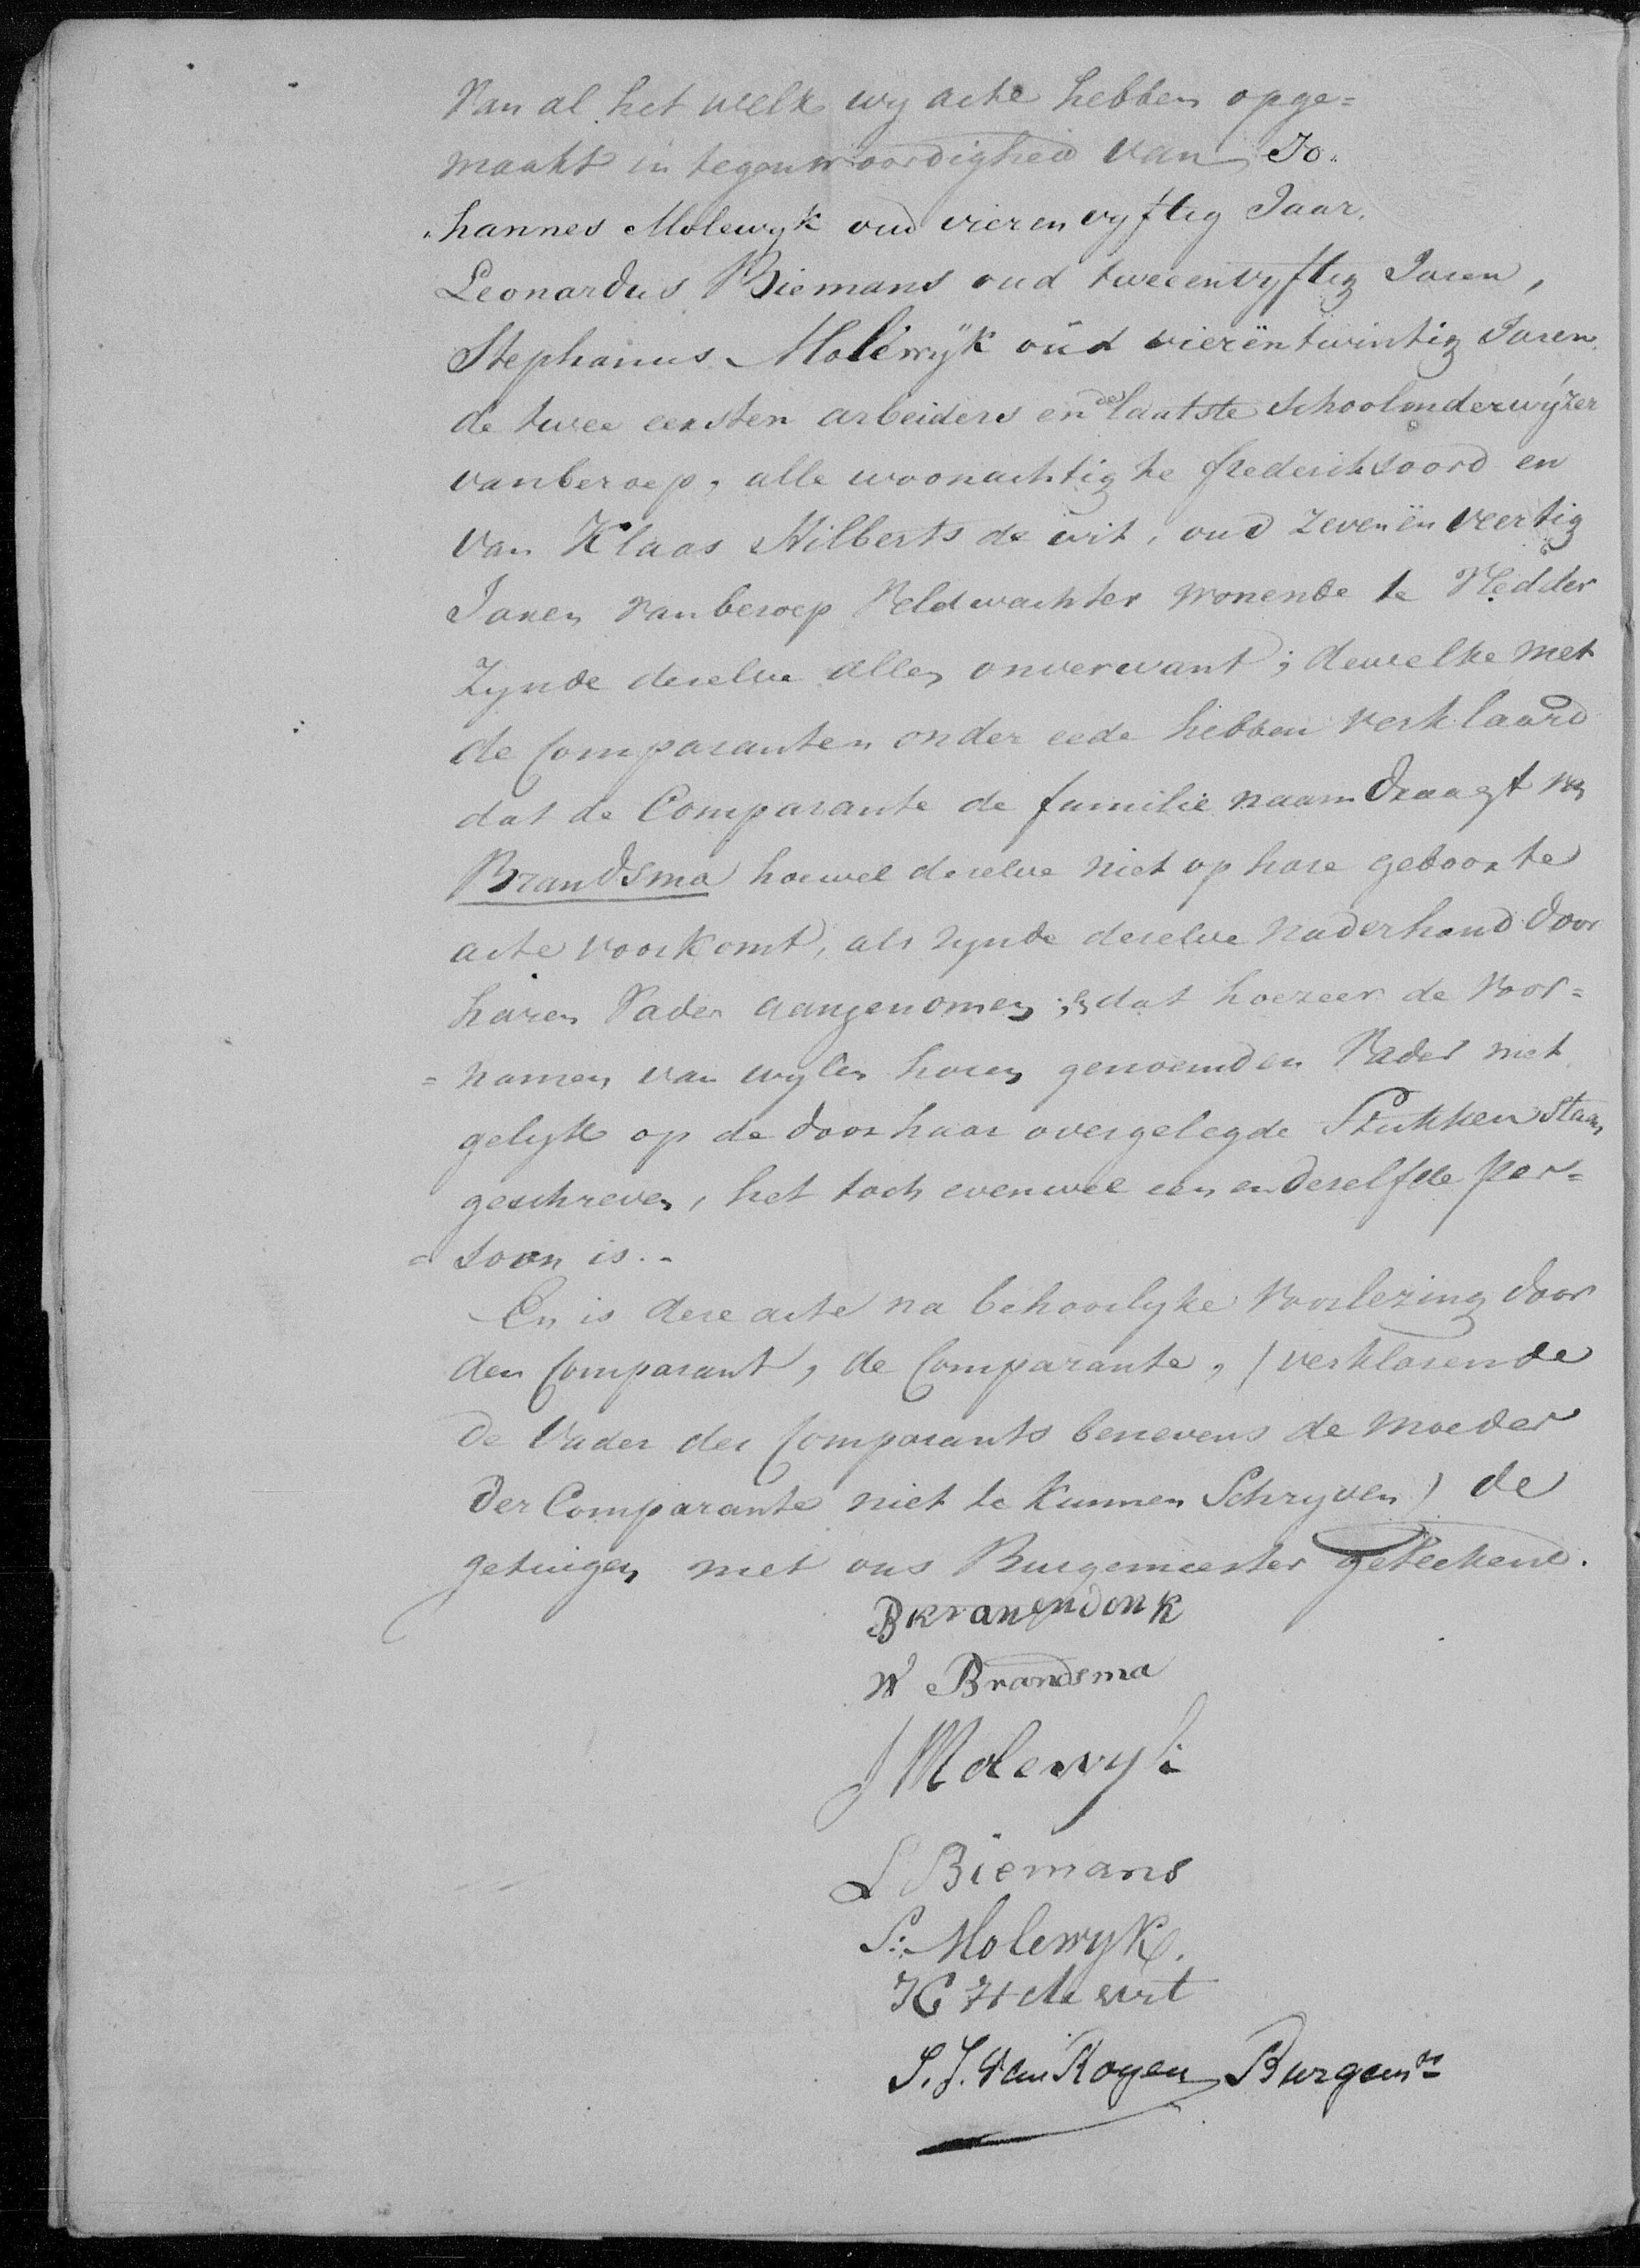 Van al het welk wy acte hebben opge=
maakt in tegenwoordigheid van Jo=
=hannes Molewyk oud vierenvyftig Jaar,
Leonardus Biemans oud tweeenvyftig Jaren,
Stephanus Molewÿk oud vierëntwintig Jaren,
de twee eersten arbeiders en de laatste Schoolonderwÿzer
van beroep, alle woonachtig te frederiksoord en
van Klaas Hilberts de wit, oud zevenënveertig
Jaren van beroep Veldwachter wonende te Vledder
Zynde deselve allen onverwant; dewelke met
de Comparanten onder eede hebben verklaard
dat de Comparante de familie naam draagt van
Brandsma hoewel deselve niet op hare geboorte
acte voorkomt, als zynde deselve naderhand door
haren Vader aangenomen; en dat hoezeer de Voor=
=namen van wylen haren genoemden Vader niet
gelyk op de door haar overgelegde Stukken Staan
geschreven, het toch evenwel een en deselfde per=
=soon is.-
En is dese acte na behoorlyke Voorlezing door
den Comparant, de Comparante, (verklarende
de Vader des Comparants benevens de moeder
der Comparante niet te kunnen Schryven) de
getuigen met ons Burgemeester geteekend.
B Kranendonk
W Brandsma
J Molewyk
L Biemans
S: Molewyk.
K H de wit
S. J. Van Royen Burgemr